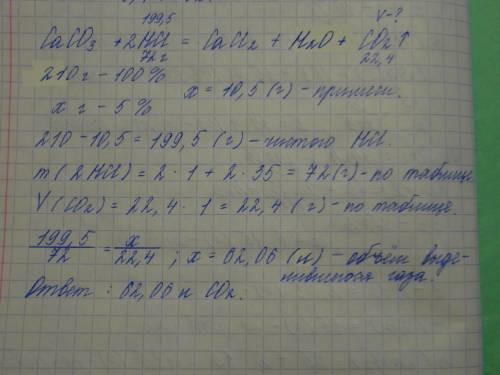 199,5 V-?
CaCO₃ + 2HCl = CaCl₂ + H₂O + CO₂↑
72г 22,4
210 г - 100 %
x г - 5 % x = 10,5 (г) - примеси.
210 - 10,5 = 199,5 (г) - чистого HCl.
m(2HCl) = 2 · 1 + 2 · 35 = 72(г) - по таблице
V(CO₂) = 22,4 · 1 = 22,4 (г) - по таблице.
199,5/72 = x/22,4 ; x = 62,06 (л) - объём выде-
лившегося газа.
Ответ : 62,06 л CO₂.